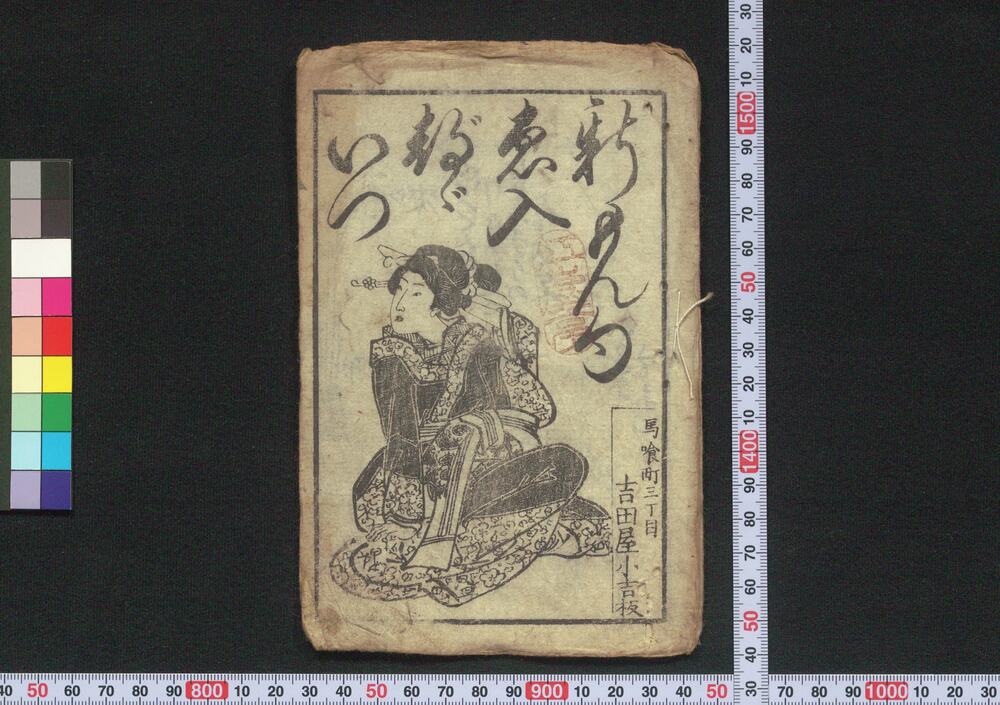 新もん句
恵入
都ゞ
いつ
馬喰町三丁目
吉田屋小吉板
30 20 10 1500 90 80 70 60 50 40 30 20 10 1400 90 80 70 60 50 40 30
40 50 60 70 80 90 800 10 20 30 40 50 60 70 80 90 900 10 20 30 40 50
70 80 90 1000 10 20 30